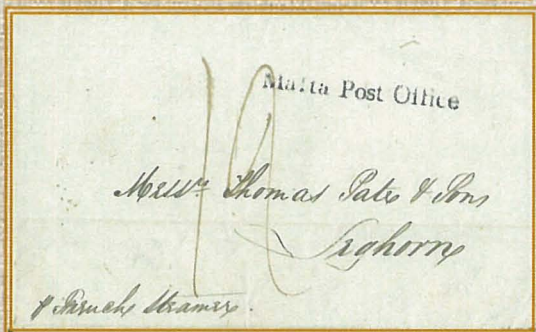 Malta Post Office
Messrs Thomas Pate & Sons
Leghorn
12
Steamer